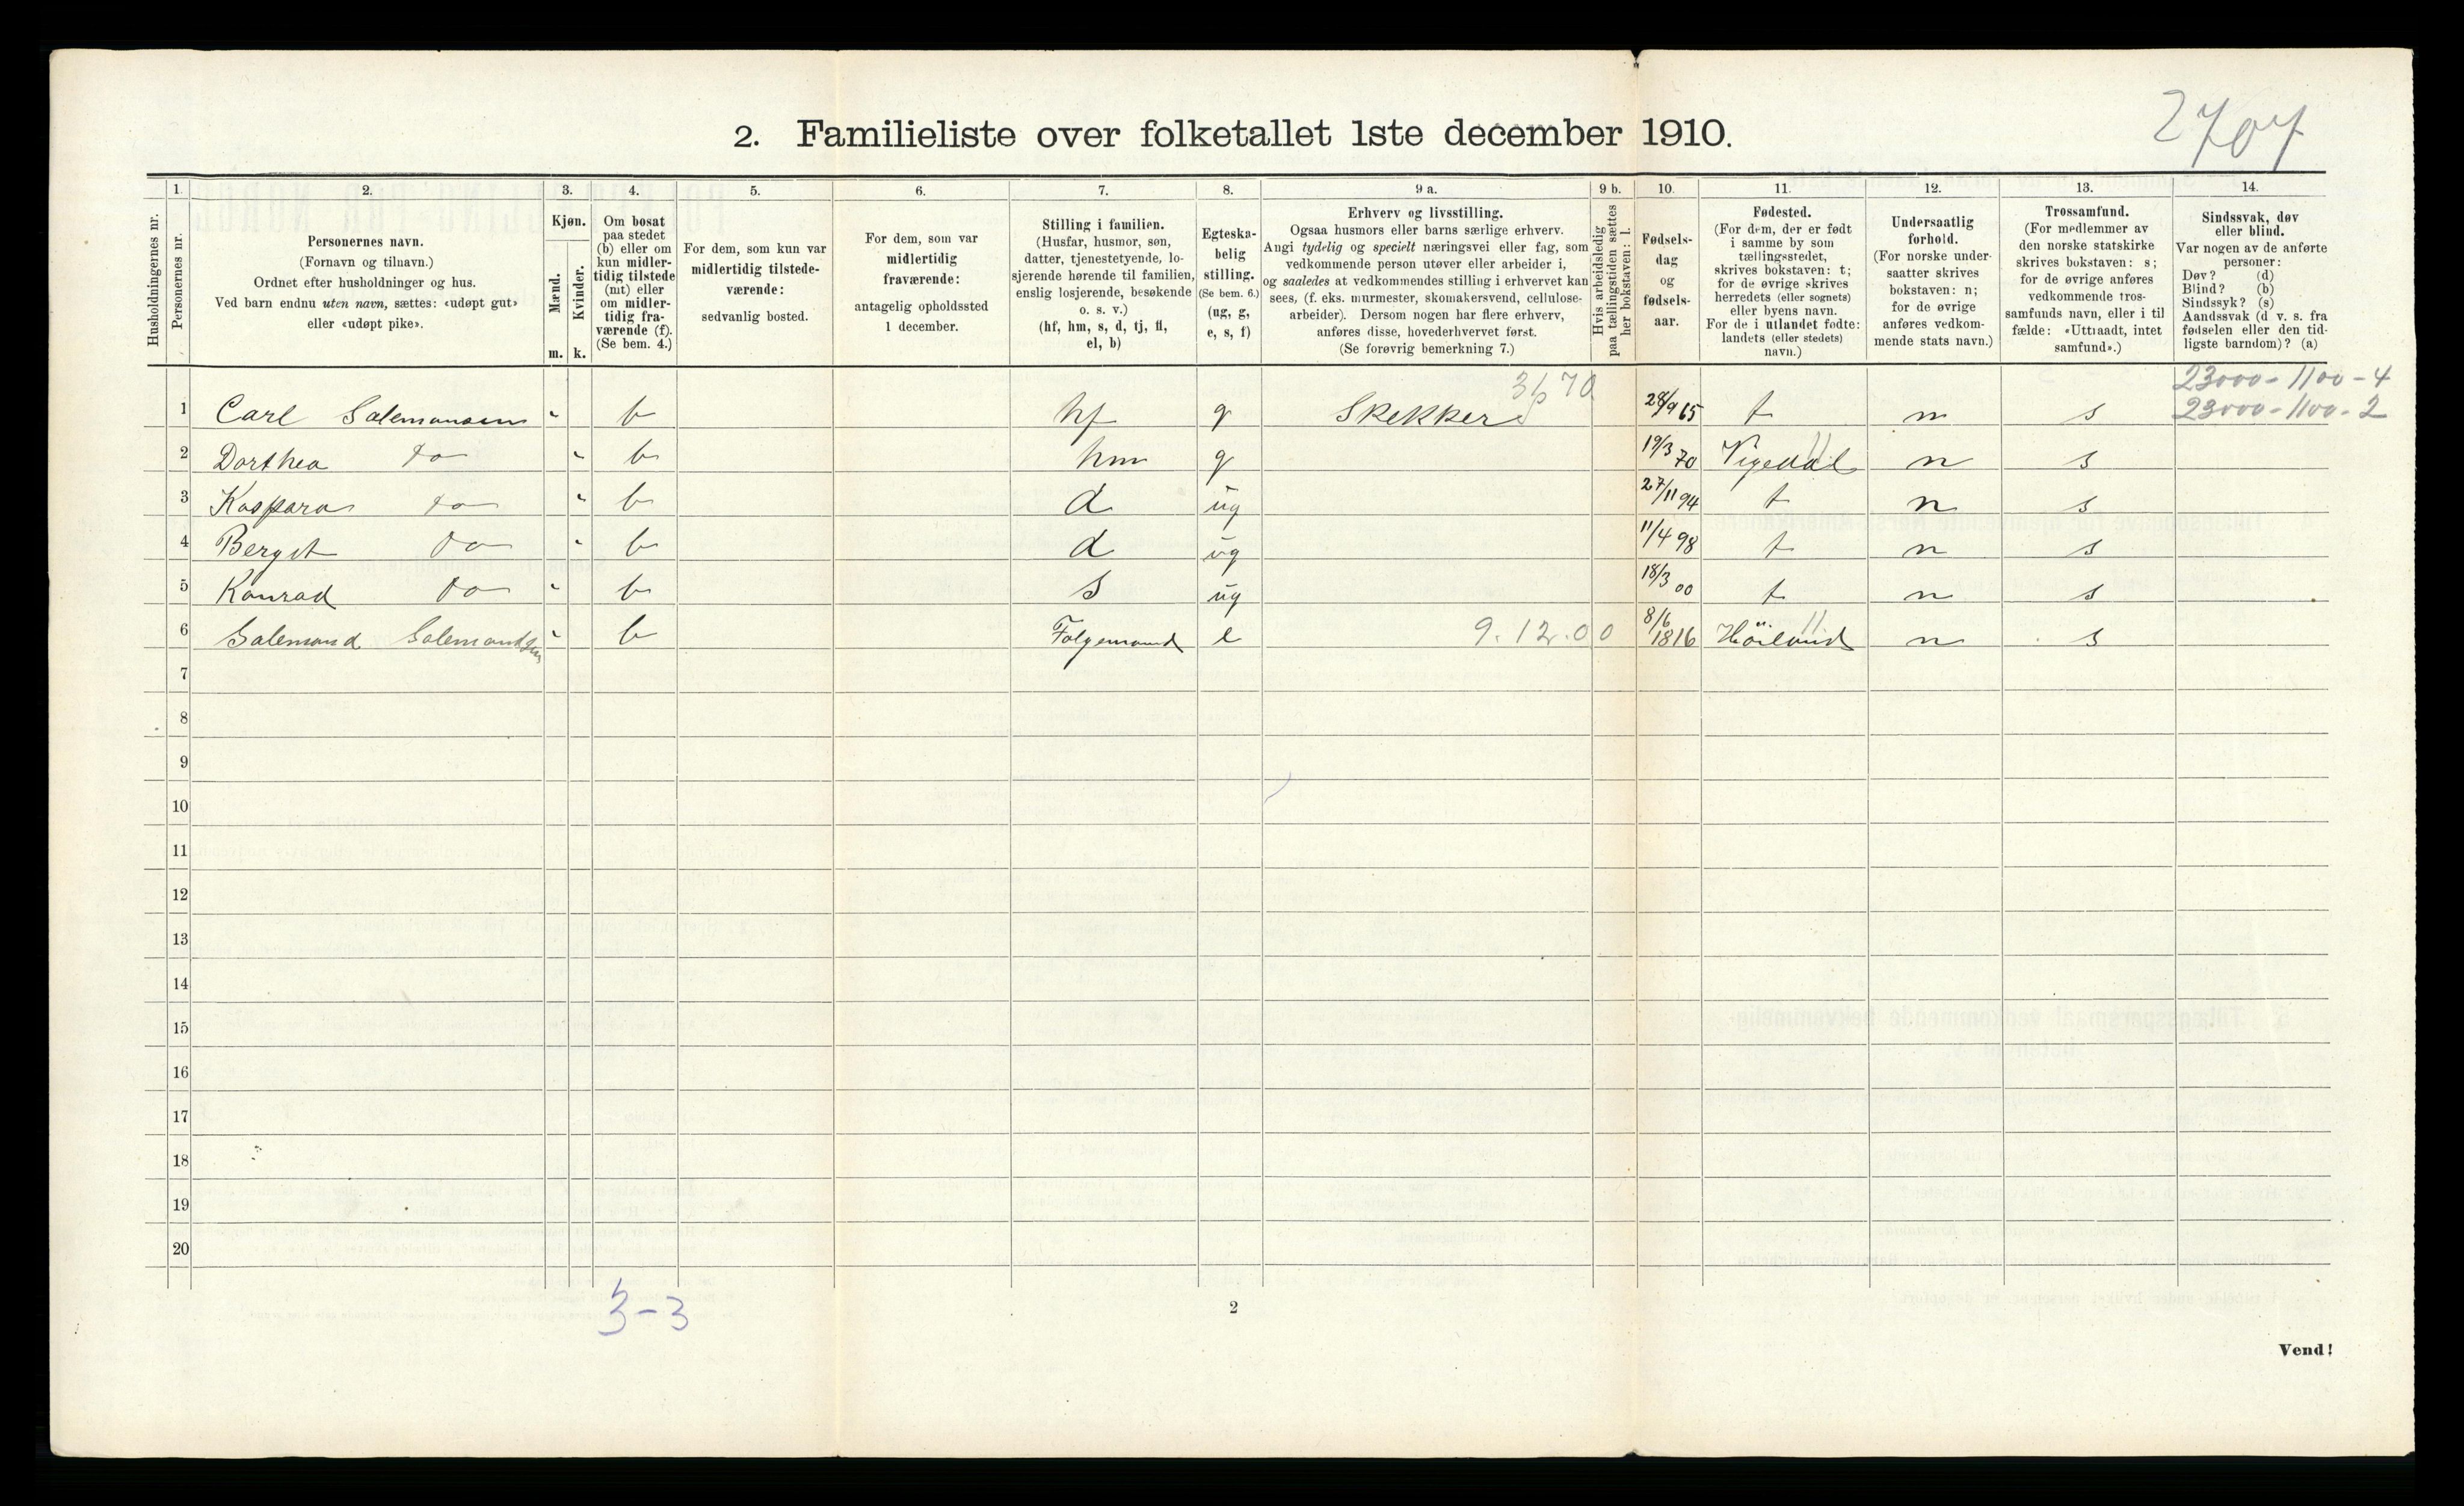 2707
2. Familieliste over folketallet 1ste december 1910.
Husholdningernes nr.
1. Personernes nr.
2. Personernes navn.
(Fornavn og tilnavn.)
Ordnet efter husholdninger og hus.
Ved barn endnu uten navn, sættes: «udøpt gut»
eller «udøpt pike».
3. Kjøn.
Mænd. m.
Kvinder. k.
4. Om bosat
paa stedet
(b) eller om
kun midler-
tidig tilstede
(mt) eller
om midler-
tidig fra-
værende (f).
(Se bem. 4.)
5. For dem, som kun var
midlertidig tilstede-
værende:
sedvanlig bosted.
6. For dem, som var
midlertidig
fraværende:
antagelig opholdssted
1 december.
7. Stilling i familien.
(Husfar, husmor, søn,
datter, tjenestetyende, lo-
sjerende hørende til familien,
enslig losjerende, besøkende
o. s. v.)
(hf, hm, s, d, tj, fl,
el, b)
8. Egteska-
belig
stilling.
(Se bem. 6.)
(ug, g,
e, s, f)
9 a. Erhverv og livsstilling.
Ogsaa husmors eller barns særlige erhverv.
Angi tydelig og specielt næringsvei eller fag, som
vedkommende person utøver eller arbeider i,
og saaledes at vedkommendes stilling i erhvervet kan
sees, (f. eks. murmester, skomakersvend, cellulose-
arbeider). Dersom nogen har flere erhverv,
anføres disse, hovederhvervet først.
(Se forøvrig bemerkning 7.)
9 b. Hvis arbeidsledig
paa tællingstiden sættes
her bokstaven: l.
10. Fødsels-
dag
og
fødsels-
aar.
11. Fødested.
(For dem, der er født
i samme by som
tællingsstedet,
skrives bokstaven: t;
for de øvrige skrives
herredets (eller sognets)
eller byens navn.
For de i utlandet fødte:
landets (eller stedets)
navn.)
12. Undersaatlig
forhold.
(For norske under-
saatter skrives
bokstaven: n;
for de øvrige
anføres vedkom-
mende stats navn.)
13. Trossamfund.
(For medlemmer av
den norske statskirke
skrives bokstaven: s;
for de øvrige anføres
vedkommende tros-
samfunds navn, eller i til-
fælde: «Uttraadt, intet
samfund».)
14. Sindssvak, døv
eller blind.
Var nogen av de anførte
personer:
Døv? (d)
Blind? (b)
Sindssyk? (s)
Aandssvak (d v. s. fra
fødselen eller den tid-
ligste barndom)? (a)
23000 - 1100 - 4
23000 - 1100 - 2
1 Carl Salemonsen b hf g Skrekker 28/9 65 t n s
2 Dorthea do b hm g 19/3 70 Vigedal n s
3 Kaspara do b d ug 27/11 94 t n s
4 Bergit do b d ug 11/4 98 t n s
5 Konrad do b s ug 18/3 00 t n s
6 Salemand Salemandsen b Folgemand e 9.12.00 8/6 1816 Höiland n s
7
8
9
10
11
12
13
14
15
16
17
18
19
20
3-3
2
Vend!